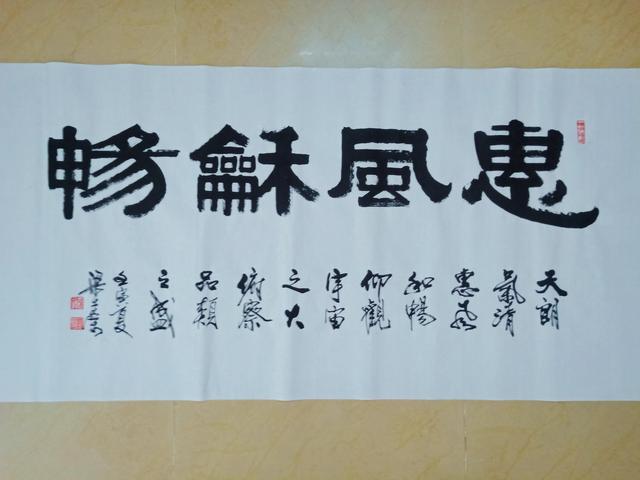 惠風龢暢
天朗
氣清
惠風
和暢
仰觀
宇宙
之大
俯察
品類
之盛
壬寅夏
梁